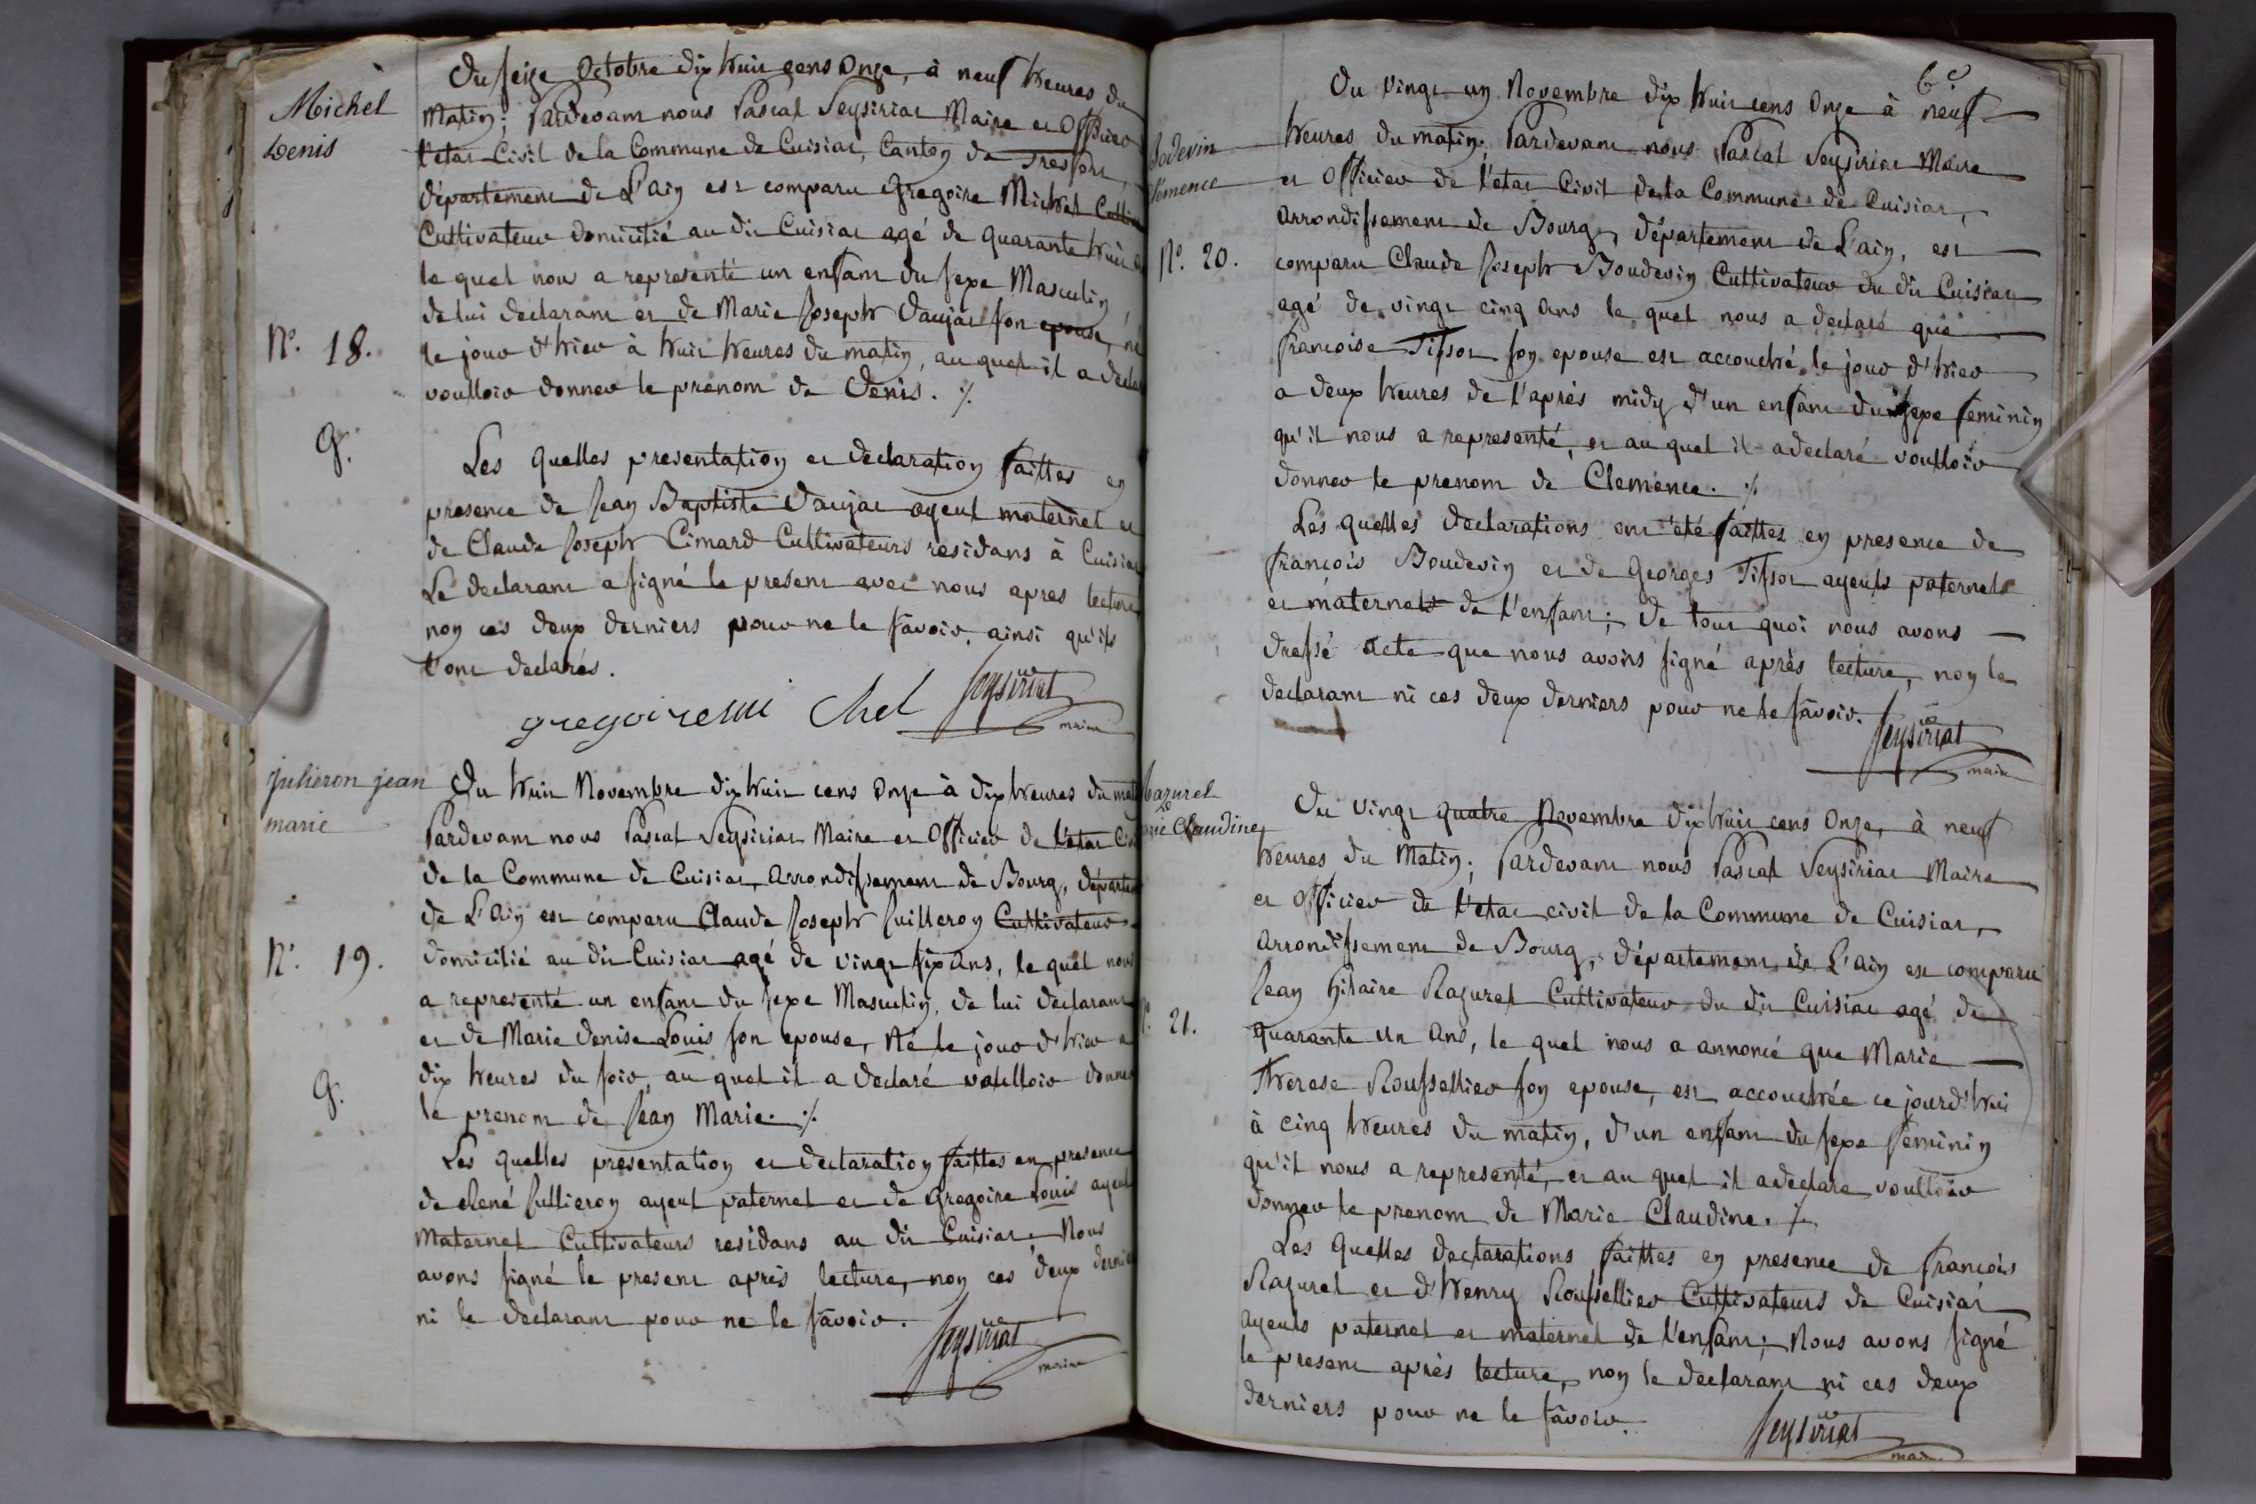 Michel
Denis
N.º 18.
G.
Du seize Octobre dix huit cens Onze, à neuf heures du
Matin; Pardevant nous Pascal Seysiriat Maire et Officier
l'etat Civil de la Commune de Cuisiat, Canton de Tresfort,
département de L'ain est comparu Gregoire Michel
Cultivateur domicilié au dit Cuisiat agé de quarante huit
le quel nous a representé un enfant du sexe Masculin
de lui declarant et de Marie Joseph Daujat son epouse, né
le jour d'hier à huit heures du matin, au quel il a declaré
voulloir donner le prenom de Denis. ./.
Les quelles presentation et declaration faittes en
presence de Jean Baptiste Daujat ayeul maternel et
de Claude Joseph Cimard Cultivateurs residans à Cuisiat
Le declarant a signé le present avec nous apres lecture,
non ces deux derniers pour ne le savoir, ainsi qu'ils
l'ont declarés.
gregoire mi chel Seysiriat
maire
julieron jean
marie
N.º 19.
G.
Du huit Novembre dix huit cens Onze à dix heures du mat
Pardevant nous Pascal Seysiriat Maire et Officier de l'etat Civ
de la Commune de Cuisiat, Arrondissement de Bourg, départem
de L'Ain est comparu Claude Joseph Juilleron Cultivateur
domicilié au dit Cuisiat agé de vingt six ans, le quel nous
a representé un enfant du sexe Masculin, de lui declarant
et de Marie Denise Louis son epouse, Né le jour d'hier a
dix heures du soir, au quel il a declaré voulloir donner
le prenom de Jean Marie. ./.
Les quelles presentation et declaration faittes en presence
de René Jullieron ayeul paternel et de Gregoire Louis ayeul
Maternel Cultivateurs residans au dit Cuisiat. Nous
avons signé le present après lecture, non ces deux dernie
ni le declarant pour ne le savoir.
Seysiriat
maire
Bodevin
Clémence
N.º 20.
Du vingt un Novembre dix huit cens Onze à neuf
heures du matin; Pardevant nous Pascal Seysiriat Maire
et Officier de l'etat Civil de la Commune de Cuisiat,
Arrondissement de Bourg, département de L'ain, est
comparu Claude Joseph Boudevin Cultivateur du dit Cuisiat
agé de vingt cinq ans le quel nous a declaré que
francoise Tissot son epouse est accouché le jour d'hier
a deux heures de l'après midy d'un enfant du sexe feminin
qu'il nous a representé, et au quel il a declaré voulloir
donner le prenom de Clemence. ./.
Les quelles declarations ont été faittes en presence de
francois Boudevin et de Georges Tissot ayeuls paternels
et maternels de l'enfant; De tout quoi nous avons
dressé acte que nous avons signé après lecture, non le
declarant ni ces deux derniers pour ne le savoir.
Seysiriat
maire
Razurel
marie Claudine
21.
Du vingt quatre Novembre dix huit cens Onze, à neuf
heures du Matin; Pardevant nous Pascal Seysiriat Maire
et officier de l'etat civil de la Commune de Cuisiat,
Arrondissement de Bourg, département de L'ain est comparu
Jean hilaire Razurel Cultivateur du dit Cuisiat agé de
quarante un ans, le quel nous a annoncé que Marie
Therese Rousselliev son epouse, est accouchée ce jourd'hui
à cinq heures du matin, d'un enfant du sexe feminin
qu'il nous a representé, et au quel il a declaré voulloir
donner le prenom de Marie Claudine. ./.
Les Quelles declarations faittes en presence de francois
Razurel et d'Henry Roussellier Cultivateurs de Cuisiat
ayeuls paternel et maternel de l'enfant; Nous avons signé
le present après lecture, non le declarant ni ces deux
derniers pour ne le savoir.
Seysiriat
maire